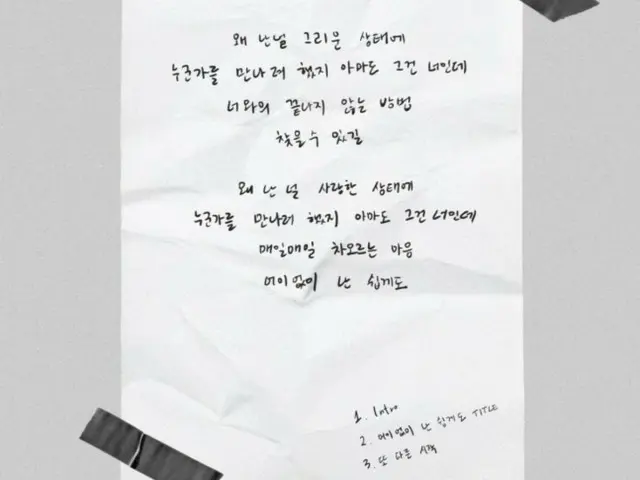 왜 난널 그리운 상태에
누군가를 만나려 했지 아마도 그건 너인데
너와의 끝나지 않는 방법
찾을수 있길
왜 난 널 사랑한 상태에
누군가를 만나려 했지 아마도 그건 너인데
매일매일 차오르는 마음
어이없이 난 쉽게도
1. Intro
2. 어이없이 난 쉽게도 TITLE
3. 또 다른 시작